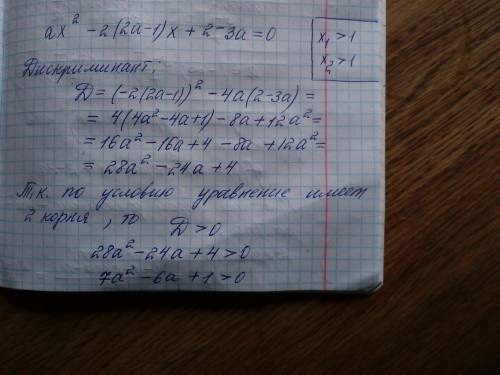 ax² - 2(2a-1)x + 2-3a = 0
x₁ > 1
x₂ > 1
Дискриминант;
D = (-2(2a-1))² - 4a(2-3a) =
= 4(4a²-4a+1) - 8a + 12a² =
= 16a² - 16a + 4 - 8a + 12a² =
= 28a² - 24a + 4
Т.к. по условию уравнение имеет
2 корня, то D > 0
28a² - 24a + 4 > 0
7a² - 6a + 1 > 0